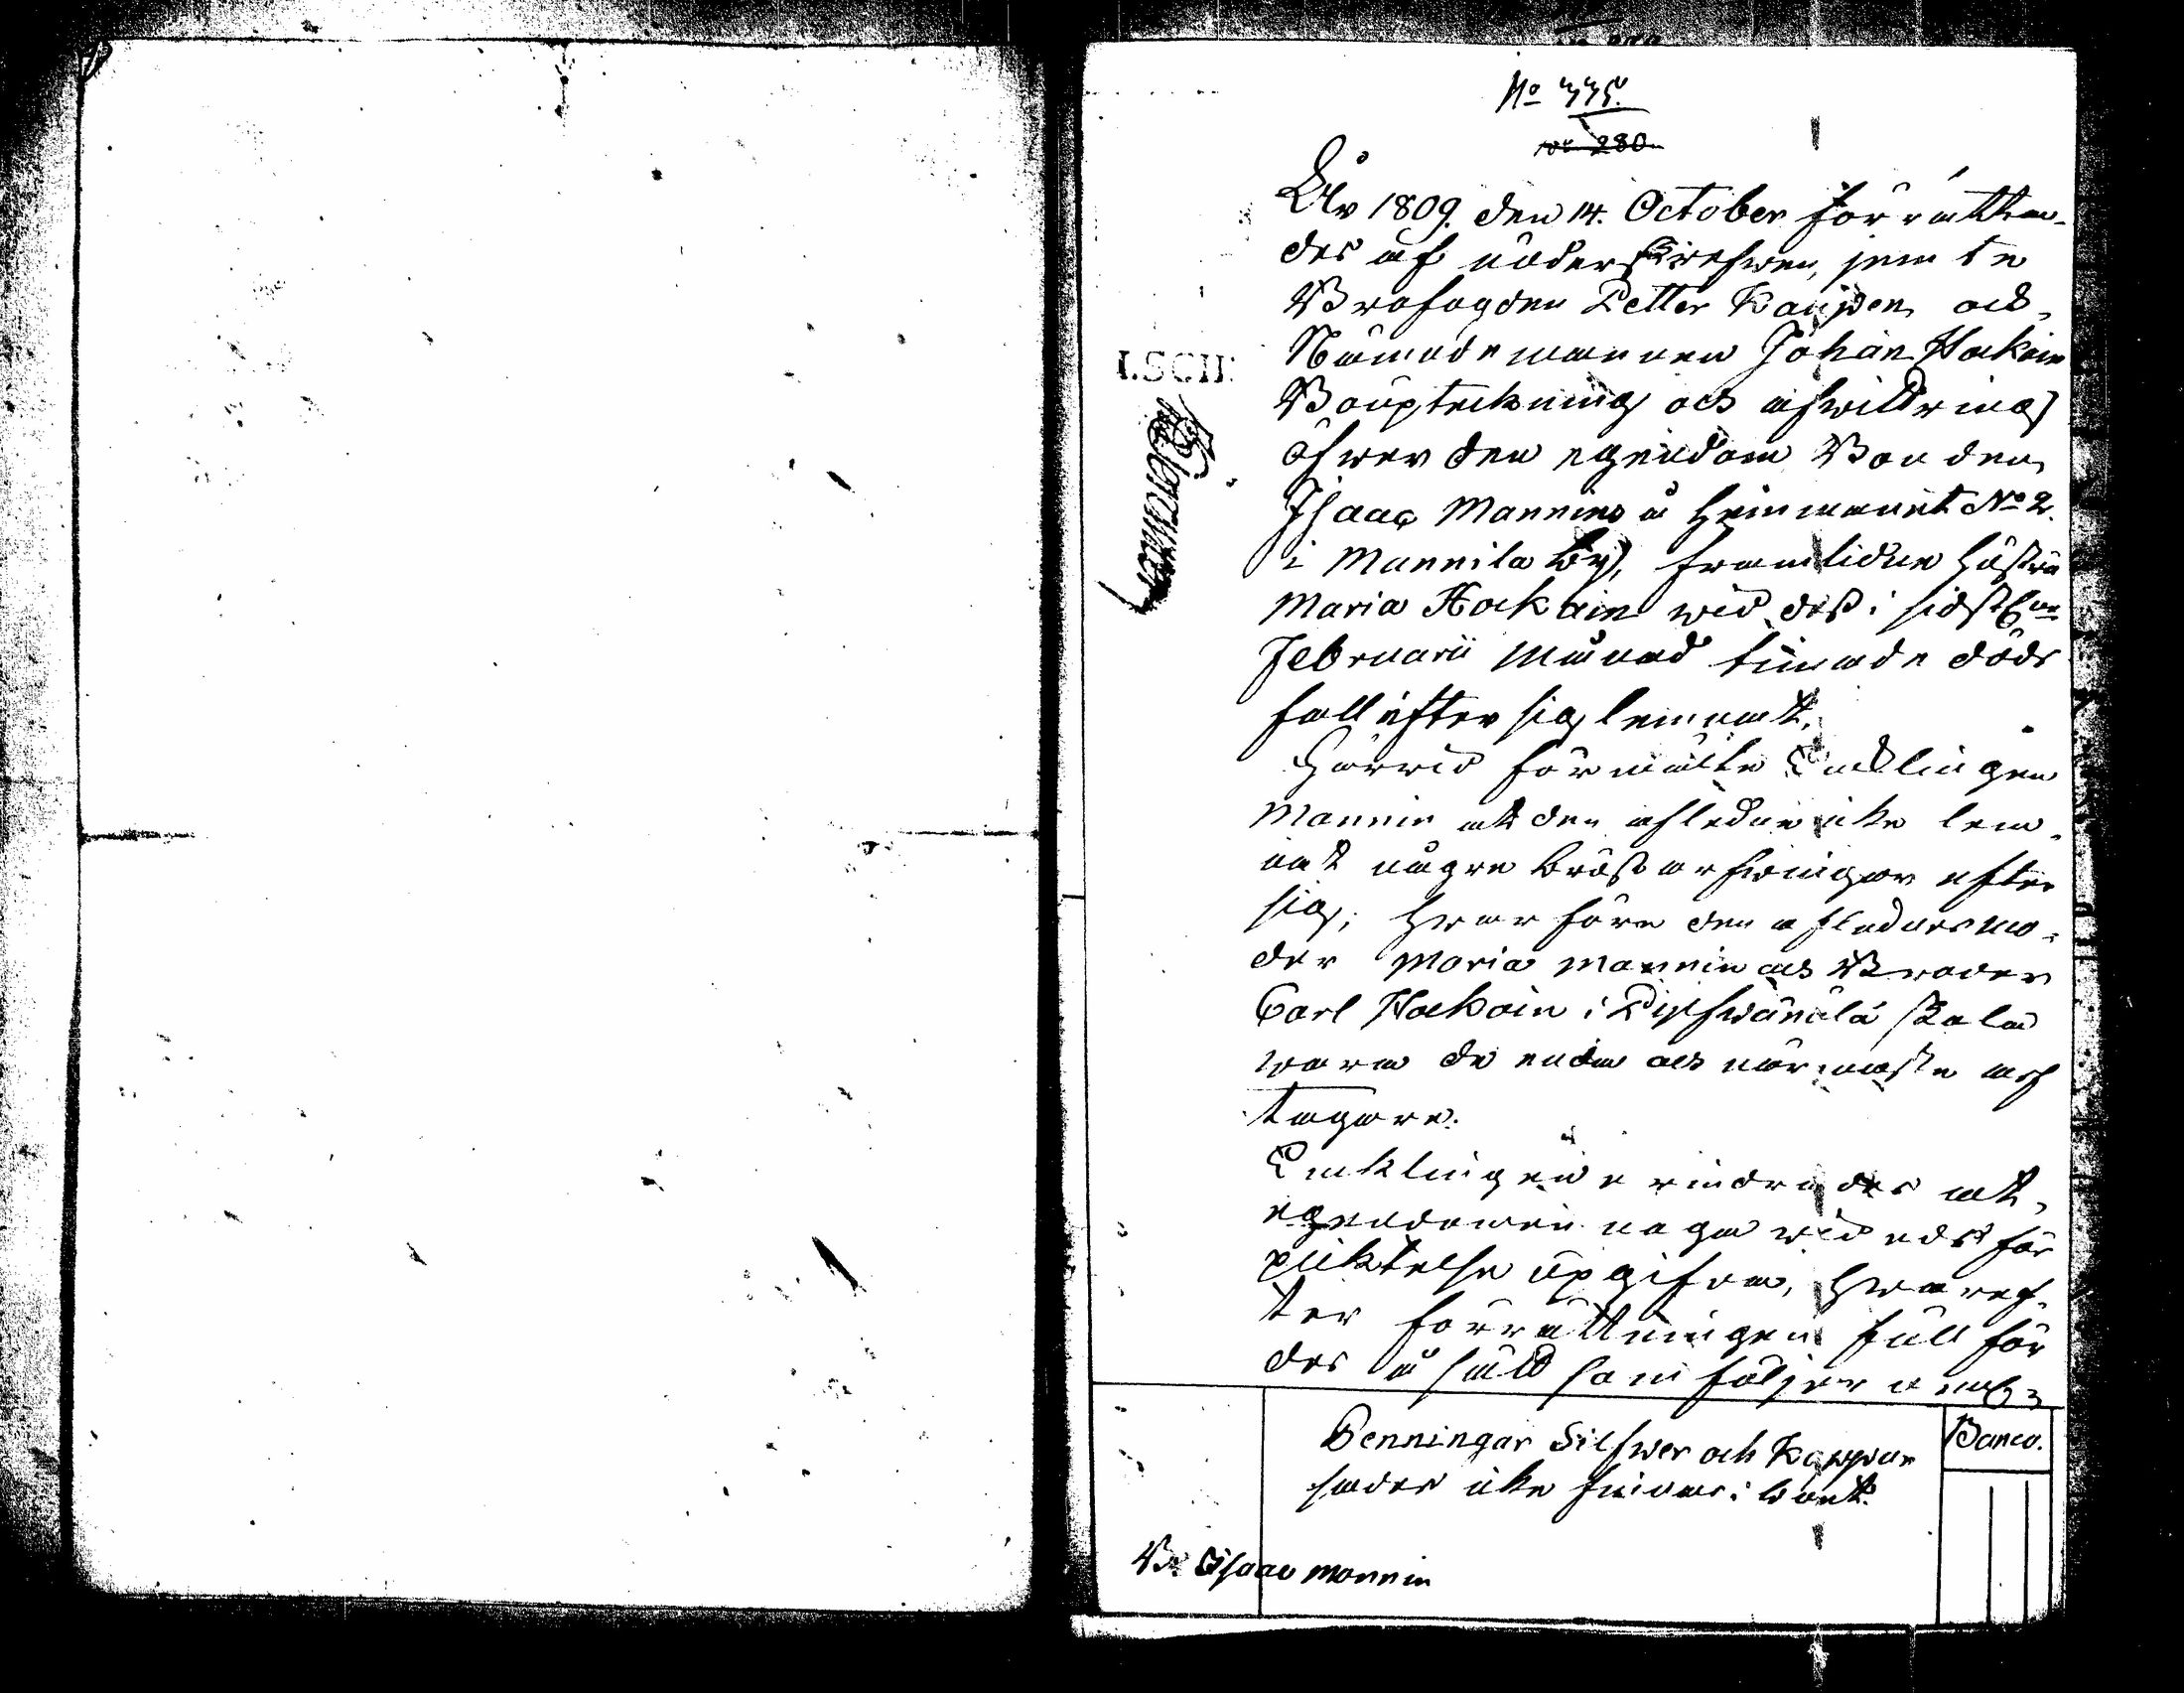 No 335.
No 280
År 1809. den 14. October förrättan-
des af underskrefwen, jemte
Brofogden Petter Kaupen och
Nämndemannen Johan Hockain
Bouptekning och afwittring
öfwer den egendom Bonden
Isaac Mannins å Hemmanet No 2.
i Mannila by, framlidne hustru
Maria Hockain wid des i sidstl.
Februarii Månad timade döds
fall efter sig lemnat.
Härwid förmälte Enklingen
Mannin at den aflidne icke lem-
nat några bröst arfwingar efter
sig; hwarföre den aflednes mo-
der Maria Mannin och Broder
Carl Hockain i skola
wara de enda och närmaste arf
tagare.
Enklingen erindrades at
egendomen noga wid eds för
pliktelse upgifwa, hwaref-
ter förrättningen full för
des å sätt som följer neml:
Penningar Silfwer och Koppar
sades icke finnas i boet.
Banco.
Isaac Mannin